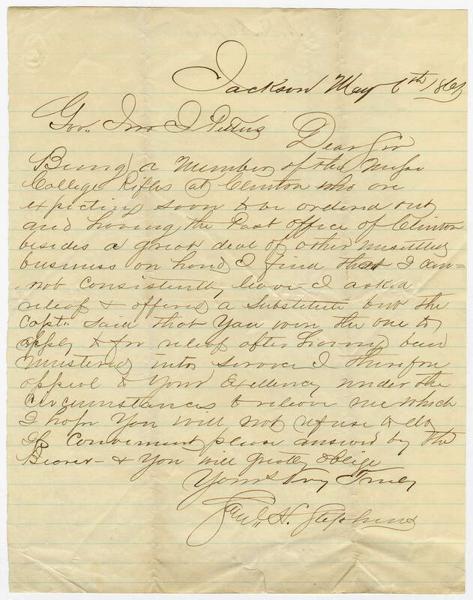 Jackson May 6th 1861
Gov. Jno J Pettus
Dear Sir
Being a Member of the Miss
College Rifles at Clinton who are
expecting soon to be ordered out
and having the Post office of Clinton
besides a great deal of other unsettled
business on hand I find that I can
not consistently leave I asked
relief & offered a Substitute but the
Capt. said that You were the one to
apply to for relief after having been
mustered into service I therefore
appeal to Your Excellency under the
circumstances to relieve me which
I hope You will not refuse to do
If Convenient please answer by the
Bearer & You will greatly oblige
Yours Very Truly
H. Stephens